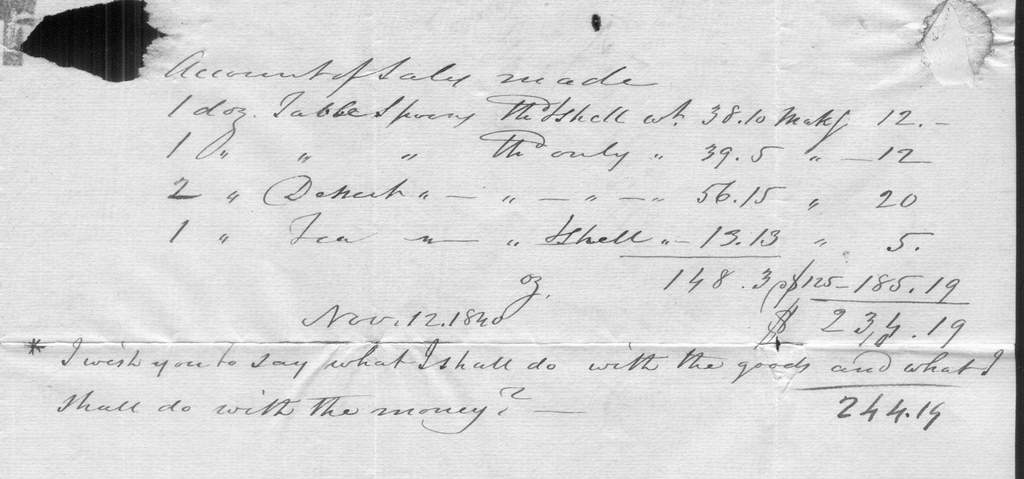 Account of Sales made
1 doz. Table Spoons Thd Shell wt. 38.10 Makg 12.–
1 " " " Thd only " 39.5 " – 12
2 " Dessert " – " – " – " 56.15 " 20
1 " Tea " – " Shell " – 13.13 " 5.
oz. 148.3 p $125 – 185.19
Nov. 12. 1840 $ 234.19
* I wish you to say what I shall do with the goods and what I
shall do with the money? —
244.19